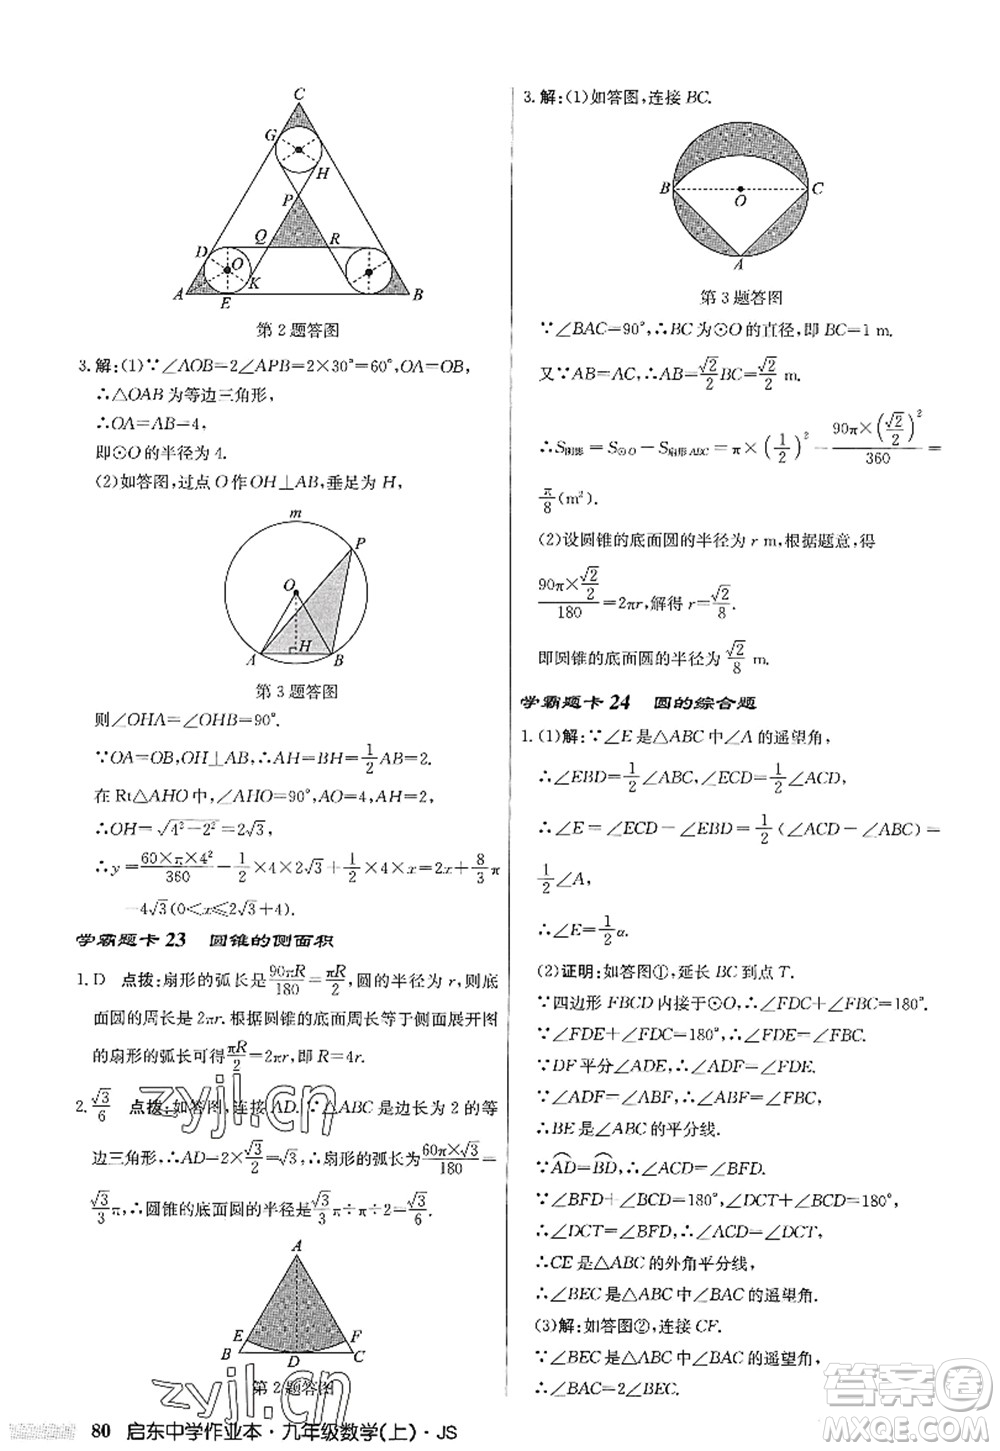 C
G
H
P
Q
R
D
O
K
A
E
B
第2题答图
3.解:(1)∵∠AOB=2∠APB=2×30°=60°,OA=OB,
∴△OAB为等边三角形,
∴OA=AB=4,
即⊙O的半径为4.
(2)如答图,过点O作OH⊥AB,垂足为H,
m
P
O
A
H
B
第3题答图
则∠OHA=∠OHB=90°.
∵OA=OB,OH⊥AB,∴AH=BH=\frac{1}{2}AB=2.
在Rt△AHO中,∠AHO=90°,AH=2,AO=4,
∴OH=\sqrt{4²-2²}=2\sqrt{3},
∴y=\frac{60×π×4²}{360}-\frac{1}{2}×4×2\sqrt{3}+\frac{1}{2}×4×x=2x+\frac{8}{3}π
-4\sqrt{3}(0<x≤2\sqrt{3}+4).
学霸题卡23 圆锥的侧面积
1.D 点拨:扇形的弧长是\frac{90πR}{180}=\frac{πR}{2},圆的半径为r,则底
面圆的周长是2πr.根据圆锥的底面周长等于侧面展开图
的扇形的弧长可得\frac{πR}{2}=2πr,即R=4r.
2.\frac{\sqrt{3}}{6} 点拨:如答图,连接AD.∵△ABC是边长为2的等
边三角形,∴AD=2×\frac{\sqrt{3}}{2}=\sqrt{3},∴扇形的弧长=\frac{60π×\sqrt{3}}{180}=
\frac{\sqrt{3}}{3}π,∴圆锥的底面圆的半径是\frac{\sqrt{3}}{3}π÷π÷2=\frac{\sqrt{3}}{6}.
A
E
F
B
D
C
第2题答图
80 启东中学作业本·九年级数学(上)·JS
3.解:(1)如答图,连接BC.
B
O
C
A
第3题答图
∵∠BAC=90°,∴BC为⊙O的直径,即BC=1 m.
又∵AB=AC,∴AB=\frac{\sqrt{2}}{2}BC=\frac{\sqrt{2}}{2} m.
∴S_{阴影}=S_{⊙O}-S_{扇形ABC}=π×(\frac{1}{2})²-\frac{90π×(\frac{\sqrt{2}}{2})²}{360}=
\frac{π}{8}(m²).
(2)设圆锥的底面圆的半径为r m,根据题意,得
\frac{90π×\frac{\sqrt{2}}{2}}{180}=2πr,解得r=\frac{\sqrt{2}}{8}.
即圆锥的底面圆的半径为\frac{\sqrt{2}}{8} m.
学霸题卡24 圆的综合题
1.(1)解:∵∠E是△ABC中∠A的遥望角,
∴∠EBD=\frac{1}{2}∠ABC,∠ECD=\frac{1}{2}∠ACD,
∴∠E=∠ECD-∠EBD=\frac{1}{2}(∠ACD-∠ABC)=
\frac{1}{2}∠A,
∵∠A=α,∴∠E=\frac{1}{2}α.
(2)证明:如答图①,延长BC到点T.
∵四边形FBCD内接于⊙O,∴∠FDC+∠FBC=180°.
∵∠FDE+∠FDC=180°,∴∠FDE=∠FBC.
∵DF平分∠ADE,∴∠ADF=∠FDE.
∵∠ADF=∠ABF,∴∠ABF=∠FBC,
∴BE是∠ABC的平分线.
∵\overset{⌒}{AD}=\overset{⌒}{BD},∴∠ACD=∠BFD.
∵∠BFD+∠BCD=180°,∠DCT+∠BCD=180°,
∴∠DCT=∠BFD,∴∠ACD=∠DCT,
∴CE是△ABC的外角平分线.
∴∠BEC是△ABC中∠BAC的遥望角.
(3)解:如答图②,连接CF.
∵∠BEC是△ABC中∠BAC的遥望角,
∴∠BAC=2∠BEC.
zyjl.cn
zyjl.cn
答案圈
MXQE.COM